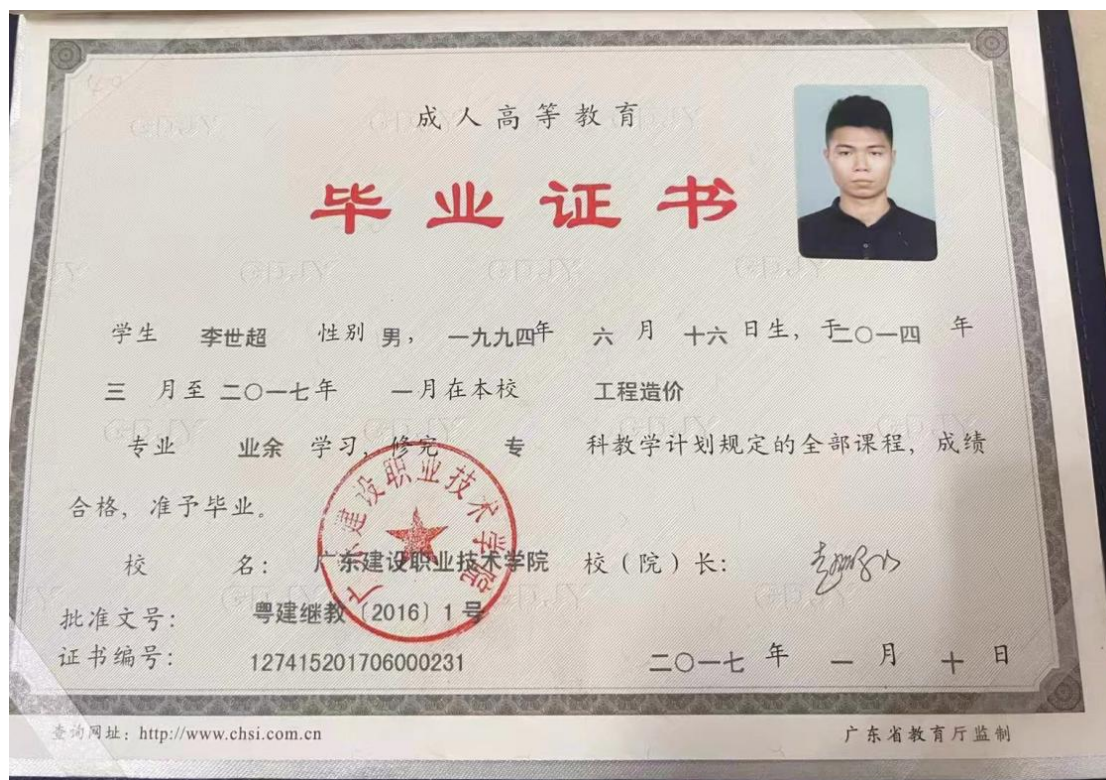 成人高等教育
毕业证书
学生 李世超 性别 男， 一九九四年 六 月 十六 日生，于二〇一四 年
三 月至 二〇一七年 一月在本校 工程造价
专业 业余 学习，修完 专 科教学计划规定的全部课程，成绩
合格，准予毕业。
校 名： 广东建设职业技术学院 校（院）长：
批准文号： 粤建继教〔2016〕1号
证书编号： 127415201706000231 二〇一七 年 一 月 十 日
广东建设职业技术学院
查询网址：http://www.chsi.com.cn 广东省教育厅监制
GDJY